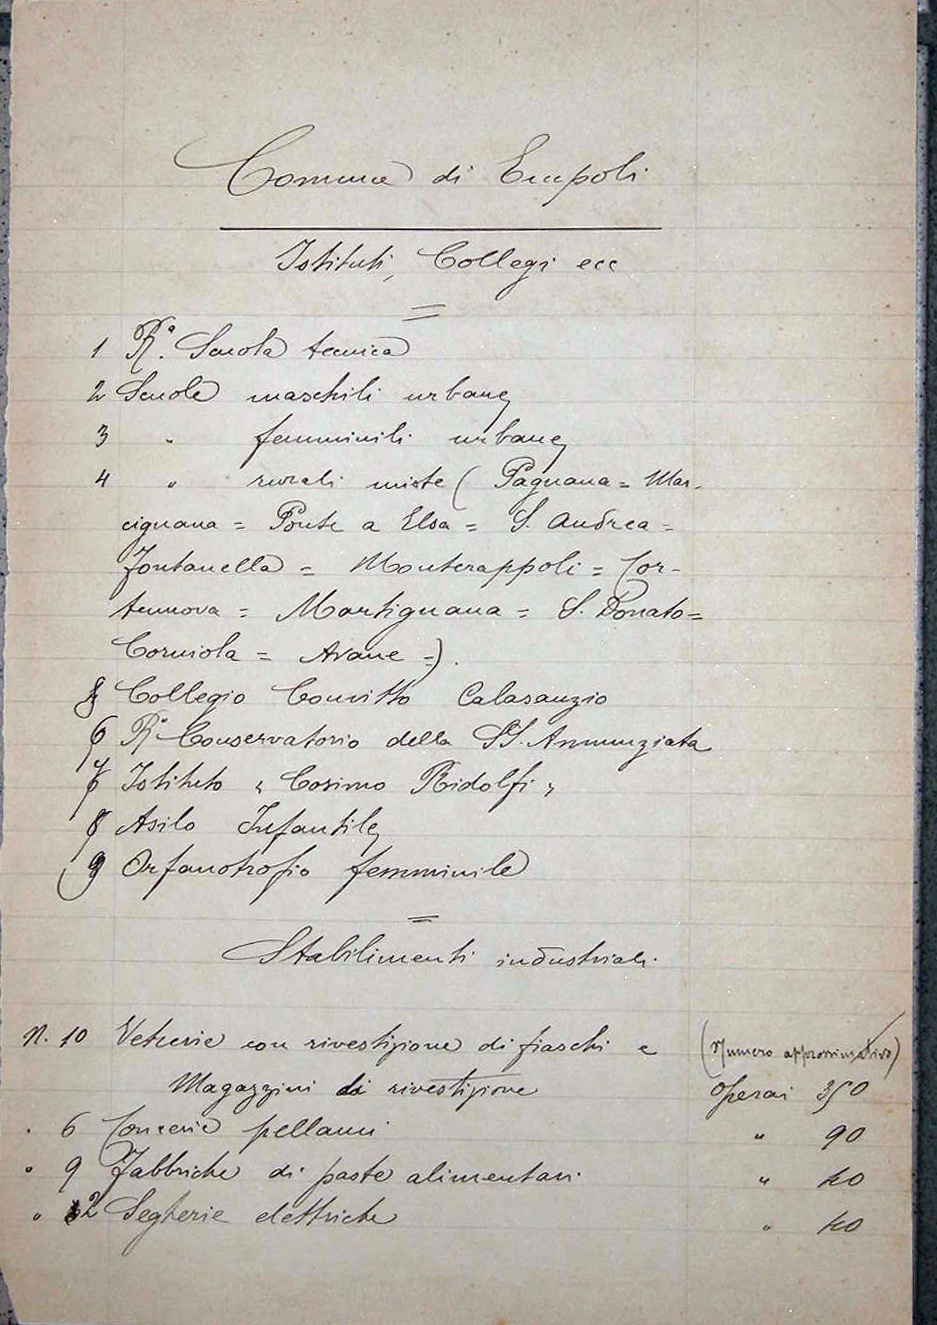 Comune di Empoli
Istituti, Collegi ecc
=
1 R.ª Scuola tecnica
2 Scuole maschili urbane
3 " femminili urbane
4 " rurali miste (Pagnana = Mar-
cignana = Ponte a Elsa = S. Andrea =
Fontanella = Monterappoli = Cor-
tennova = Martignana = S. Donato =
Corniola = Avane =).
5 Collegio Convitto Calasanzio
6 R.º Conservatorio della SS. Annunziata
7 Istituto "Cosimo Ridolfi"
8 Asilo Infantile
9 Orfanotrofio femminile
=
Stabilimenti industriali.
N. 10 Vetrerie con rivestizione di fiaschi e (Numero approssimativo)
Magazzini di rivestizione Operai 350
" 6 Concerie pellami " 90
" 9 Fabbriche di paste alimentari " 40
" 2 Segherie elettriche " 40